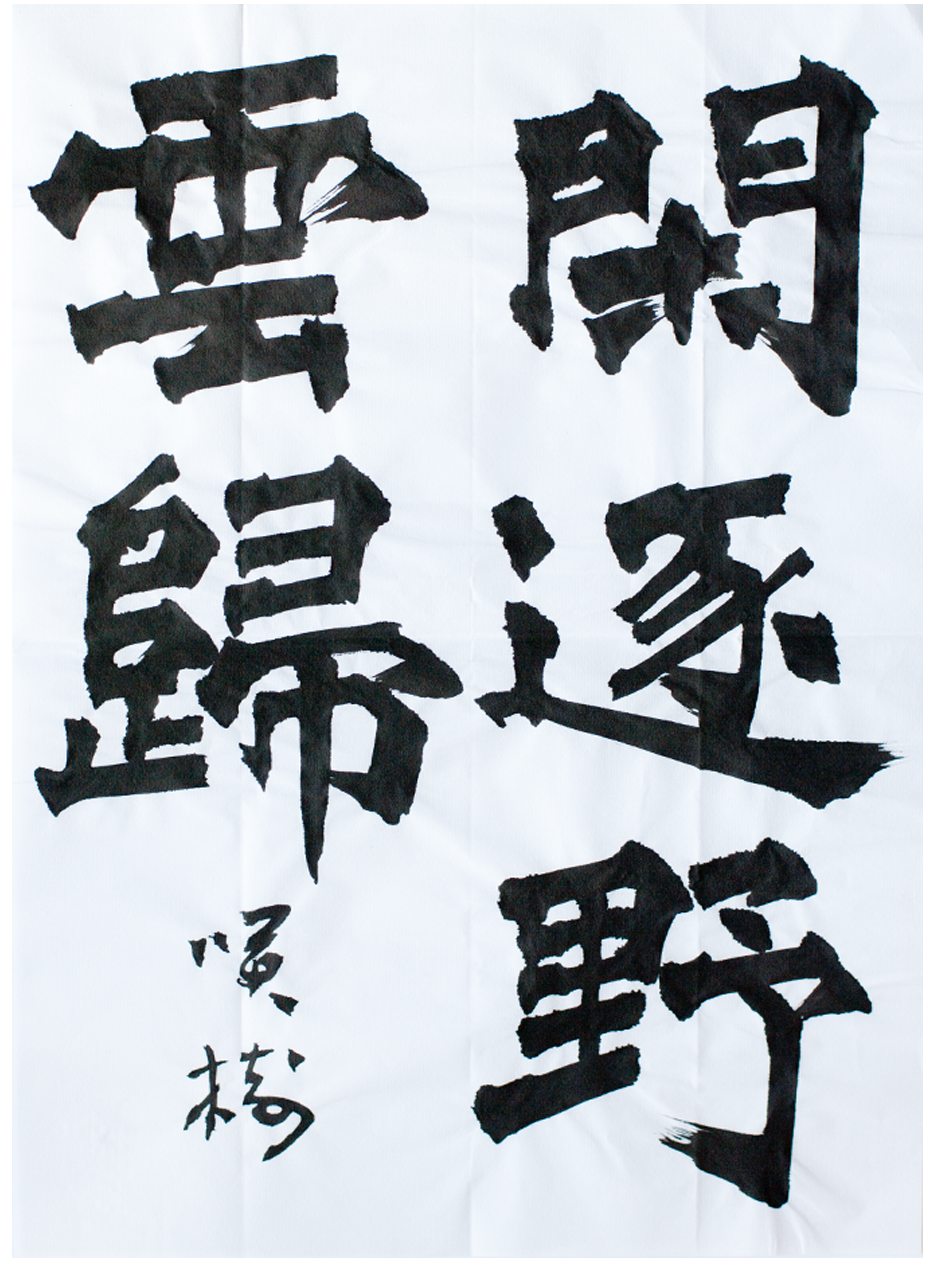 閑逐野
雲歸
樹